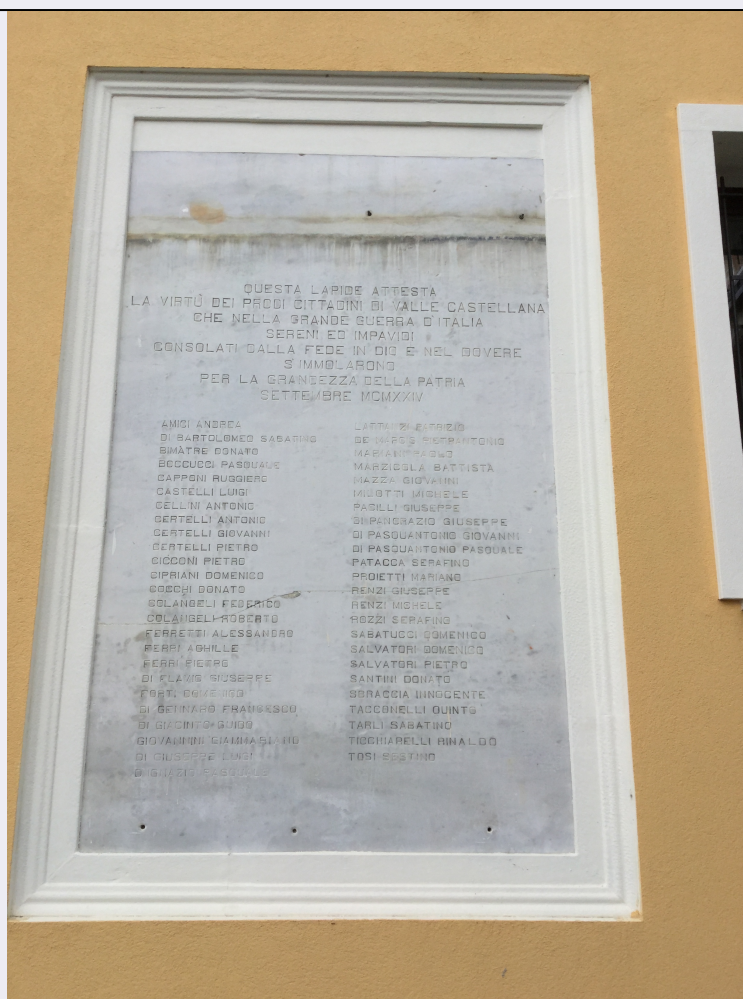 QUESTA LAPIDE ATTESTA
LA VIRTÙ DEI PRODI CITTADINI DI VALLE CASTELLANA
CHE NELLA GRANDE GUERRA D'ITALIA
SERENI ED IMPAVIDI
CONSOLATI DALLA FEDE IN DIO E NEL DOVERE
S'IMMOLARONO
PER LA GRANDEZZA DELLA PATRIA
SETTEMBRE MCMXXIV
AMICI ANDREA
DI BARTOLOMEO SABATINO
BIMATRE DONATO
BOCCUCCI PASQUALE
CAPPONI RUGGIERE
CASTELLI LUIGI
CELLINI ANTONIO
CERTELLI ANTONIO
CERTELLI GIOVANNI
CERTELLI PIETRO
CICCONI PIETRO
CIPRIANI DOMENICO
COCCHI DONATO
COLANGELI FEDERICO
COLANGELI ROBERTO
FERRETTI ALESSANDRO
FERRI ACHILLE
FERRI PIETRO
DI FLAVIO GIUSEPPE
FORTI DOMENICO
DI GENNARO FRANCESCO
DI GIACINTO GUIDO
GIOVANNINI GIAMMARINO
DI GIUSEPPE LUIGI
PASQUALE
PATRIZIO
PIETRANTONIO
MARZICOLA BATTISTA
MAZZA GIOVANNI
MICHELE
PACILLI GIUSEPPE
DI PANCRAZIO GIUSEPPE
DI PASQUANTONIO GIOVANNI
DI PASQUANTONIO PASQUALE
PATACCA SERAFINO
PROIETTI MARIANO
RENZI GIUSEPPE
RENZI MICHELE
ROZZI SERAFINO
SABATUCCI DOMENICO
SALVATORI DOMENICO
SALVATORI PIETRO
SANTINI DONATO
SBRACCIA INNOCENTE
TACCONELLI QUINTO
TARLI SABATINO
TICCHIARELLI RINALDO
TOSI SESTINO